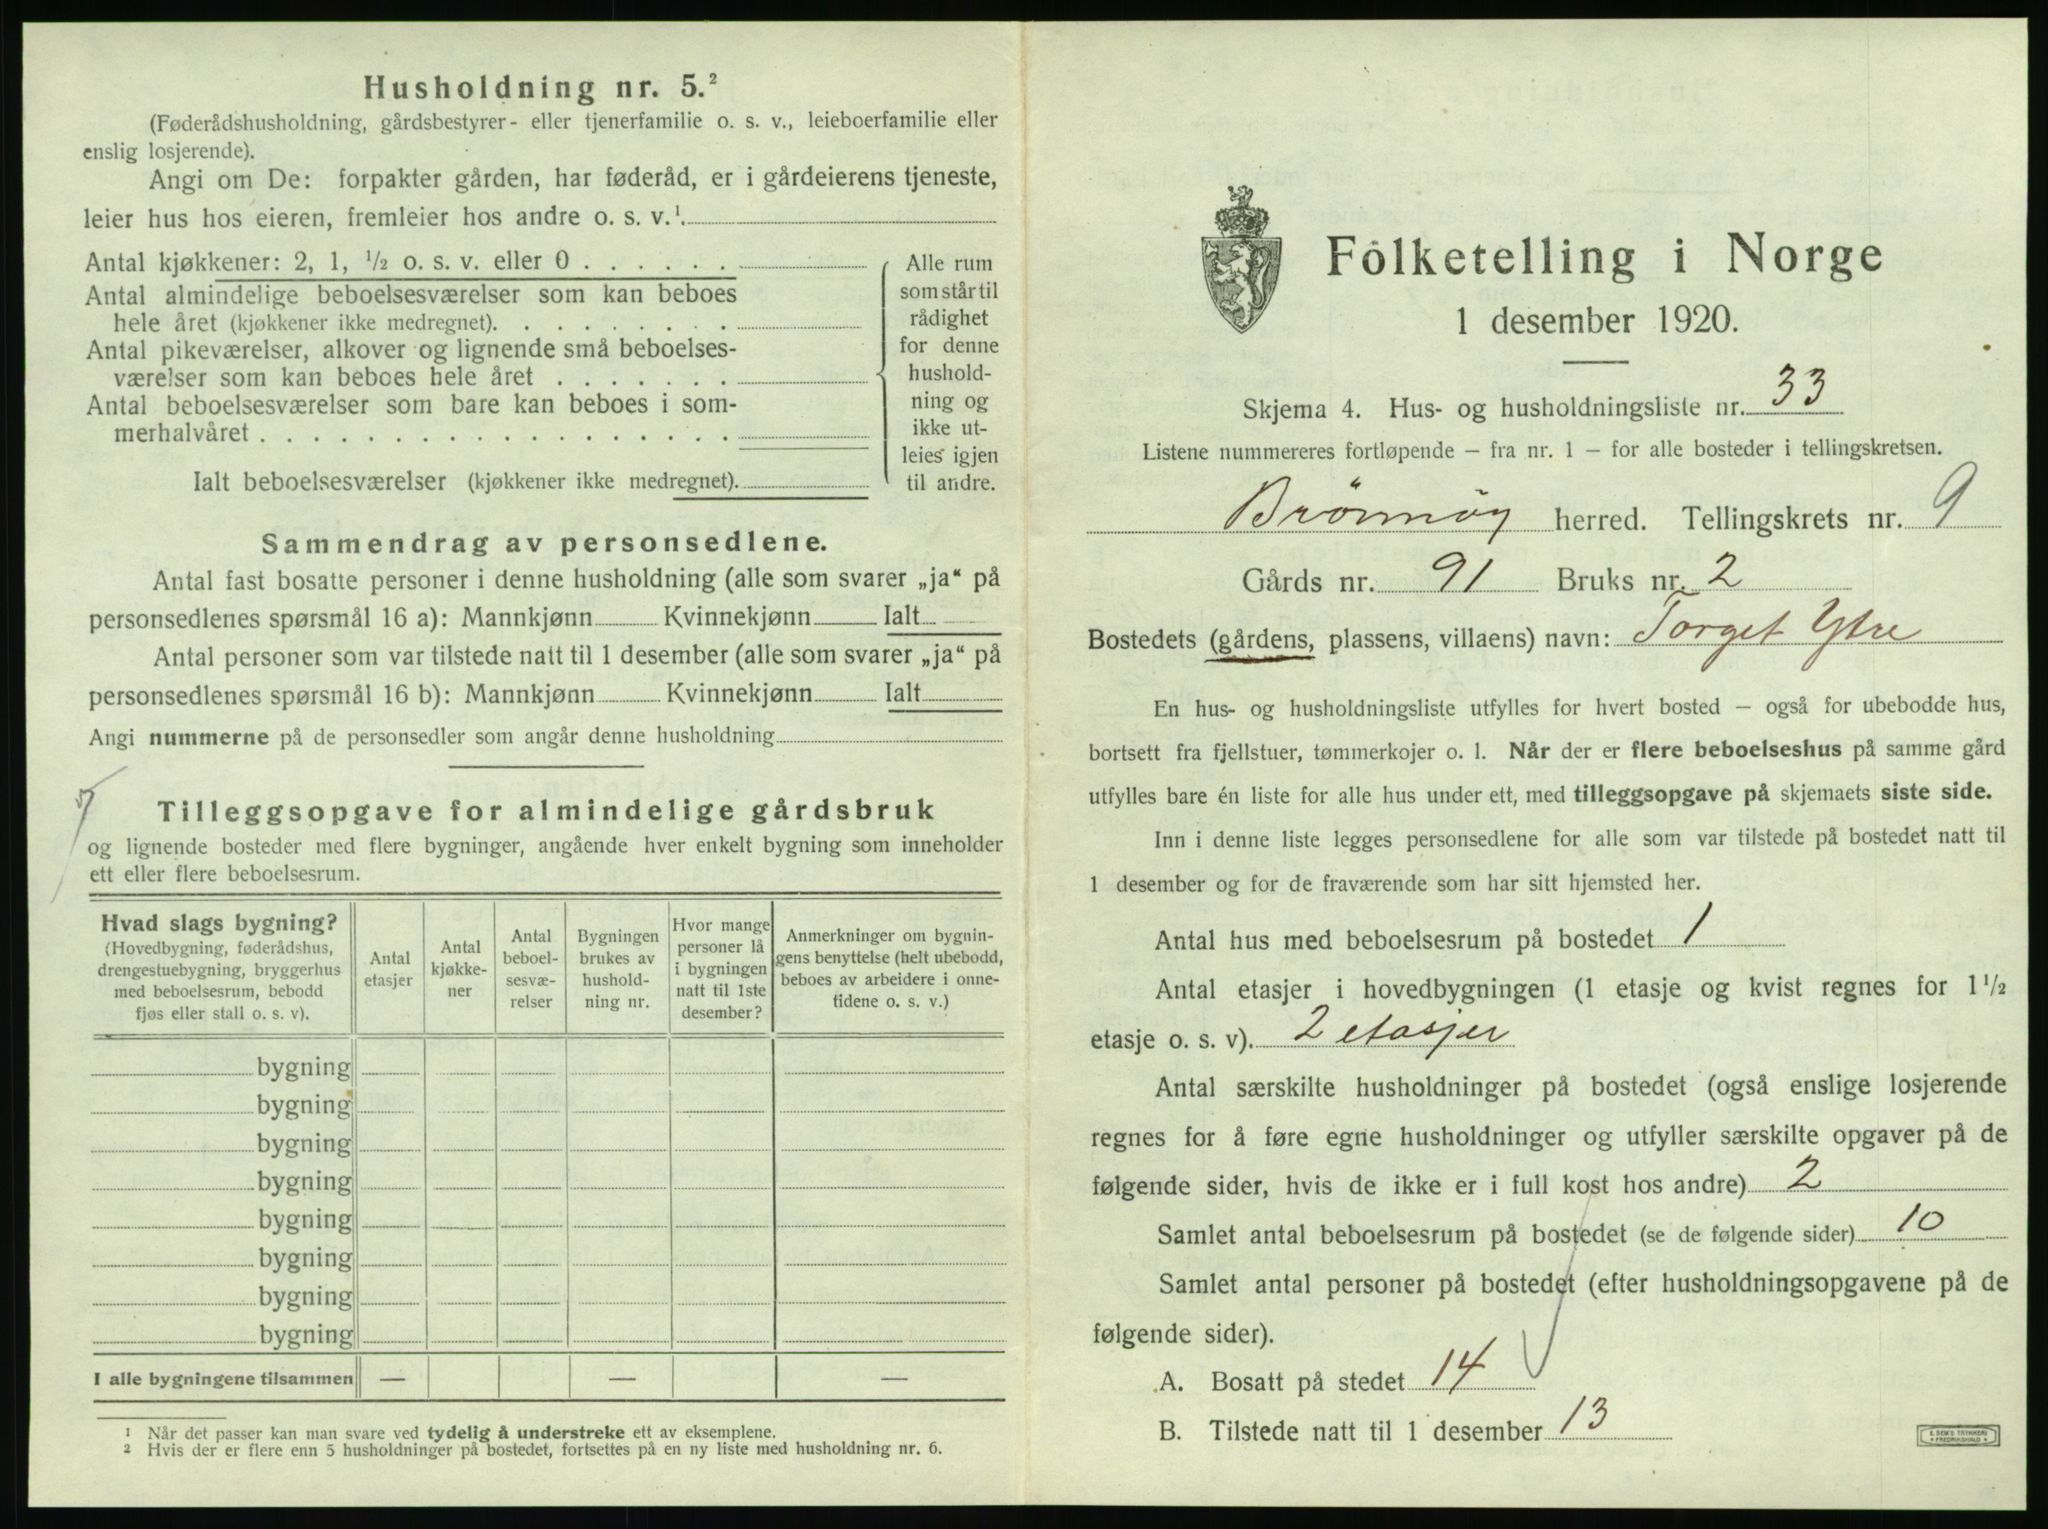 Husholdning nr. 5.²
(Føderådshusholdning, gårdsbestyrer- eller tjenerfamilie o. s. v., leieboerfamilie eller
enslig losjerende).
Angi om De: forpakter gården, har føderåd, er i gårdeierens tjeneste,
leier hus hos eieren, fremleier hos andre o. s. v.¹.
Antal kjøkkener: 2, 1, ½ o. s. v. eller 0 . . . . . .
Antal almindelige beboelsesværelser som kan beboes
hele året (kjøkkener ikke medregnet). . . . . . . . .
Antal pikeværelser, alkover og lignende små beboelses-
værelser som kan beboes hele året . . . . . . .
Antal beboelsesværelser som bare kan beboes i som-
merhalvåret . . . . . . . . . . . . . . . . . .
Ialt beboelsesværelser (kjøkkener ikke medregnet).
Alle rum
som står til
rådighet
for denne
hushold-
ning og
ikke ut-
leies igjen
til andre.
Sammendrag av personsedlene.
Antal fast bosatte personer i denne husholdning (alle som svarer „ja“ på
personsedlenes spørsmål 16 a): Mannkjønn Kvinnekjønn Ialt
Antal personer som var tilstede natt til 1 desember (alle som svarer „ja“ på
personsedlenes spørsmål 16 b): Mannkjønn Kvinnekjønn Ialt
Angi nummerne på de personsedler som angår denne husholdning
Tilleggsopgave for almindelige gårdsbruk
og lignende bosteder med flere bygninger, angående hver enkelt bygning som inneholder
ett eller flere beboelsesrum.
Hvad slags bygning?
(Hovedbygning, føderådshus,
drengestuebygning, bryggerhus
med beboelsesrum, bebodd
fjøs eller stall o. s. v).
Antal
etasjer
Antal
kjøkke-
ner
Antal
beboel-
sesvæ-
relser
Bygningen
brukes av
hushold-
ning nr.
Hvor mange
personer lå
i bygningen
natt til 1ste
desember?
Anmerkninger om bygnin-
gens benyttelse (helt ubebodd,
beboes av arbeidere i onne-
tidene o. s. v.)
bygning
bygning
bygning
bygning
bygning
bygning
bygning
bygning
I alle bygningene tilsammen — — —
¹ Når det passer kan man svare ved tydelig å understreke ett av eksemplene.
² Hvis der er flere enn 5 husholdninger på bostedet, fortsettes på en ny liste med husholdning nr. 6.
Folketelling i Norge
1 desember 1920.
Skjema 4. Hus- og husholdningsliste nr. 33
Listene nummereres fortløpende — fra nr. 1 — for alle bosteder i tellingskretsen.
Brönnöy herred. Tellingskrets nr. 9
Gårds nr. 91 Bruks nr. 2
Bostedets (gårdens, plassens, villaens) navn: Torget Ytre
En hus- og husholdningsliste utfylles for hvert bosted — også for ubebodde hus,
bortsett fra fjellstuer, tømmerkojer o. l. Når der er flere beboelseshus på samme gård
utfylles bare én liste for alle hus under ett, med tilleggsopgave på skjemaets siste side.
Inn i denne liste legges personsedlene for alle som var tilstede på bostedet natt til
1 desember og for de fraværende som har sitt hjemsted her.
Antal hus med beboelsesrum på bostedet 1
Antal etasjer i hovedbygningen (1 etasje og kvist regnes for 1½
etasje o. s. v). 2 etasjer
Antal særskilte husholdninger på bostedet (også enslige losjerende
regnes for å føre egne husholdninger og utfyller særskilte opgaver på de
følgende sider, hvis de ikke er i full kost hos andre) 2
Samlet antal beboelsesrum på bostedet (se de følgende sider) 10
Samlet antal personer på bostedet (efter husholdningsopgavene på de
følgende sider).
A. Bosatt på stedet 14
B. Tilstede natt til 1 desember 13